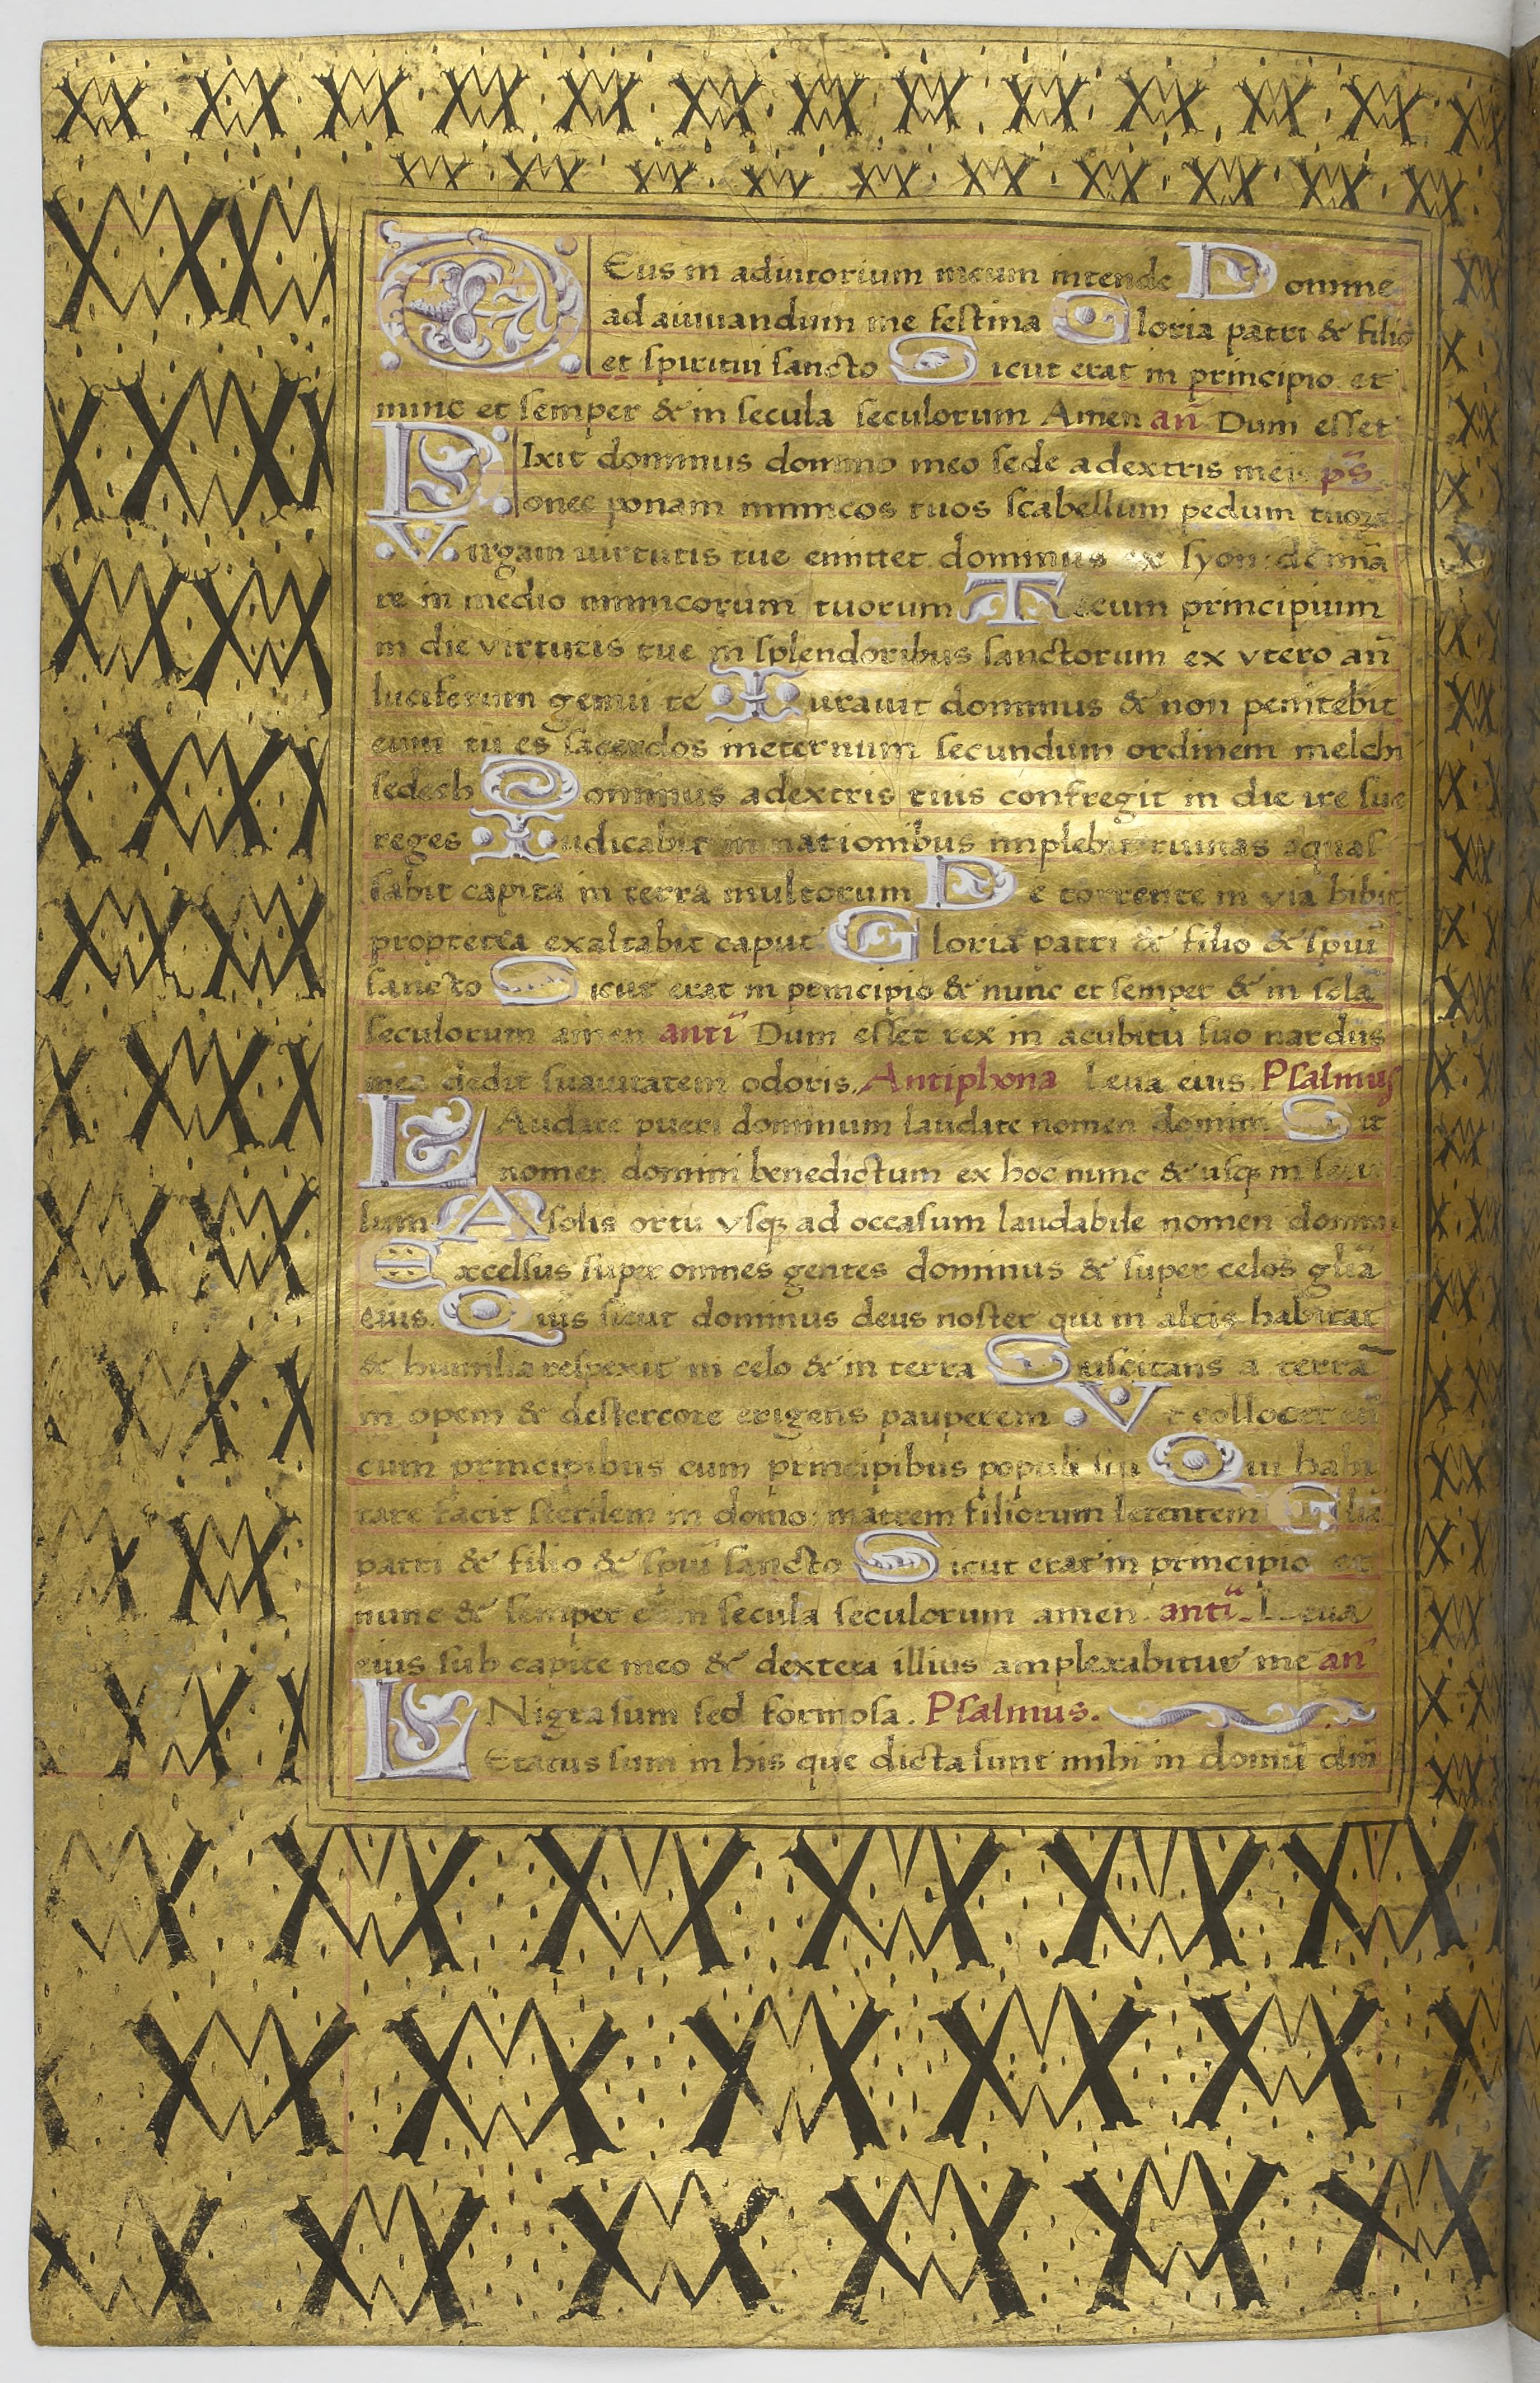 DEus in adiutorium meum intende Domine
ad aiuuandum me festina Gloria patri & filio
et spiritui sancto Sicut erat in principio et
nunc et semper & in secula seculorum Amen an̄ Dum esset
DIxit dominus domino meo sede adextris meis ps̄
Donec ponam inimicos tuos scabellum pedum tuoꝝ
Virgam uirtutis tue emittet dominus ex syon: domina
re in medio inimicorum tuorum Tecum principium
in die virtutis tue in splendoribus sanctorum ex vtero an̄
luciferum genui te Iurauit dominus & non penitebit
eum tu es sacerdos ineternum secundum ordinem melchi
sedech Dominus adextris tuis confregit in die ire sue
reges Iudicabit in nationibus implebit ruinas 9quas
sabit capita in terra multorum De torrente in via bibit
propterea exaltabit caput Gloria patri & filio & spiūi
sancto Sicut erat in principio & nunc et semper & in scla
seculorum amen anti Dum esset rex in acubitu suo nardus
mea dedit suauitatem odoris. Antiphona Leua eius. Psalmus
LAudate pueri dominum laudate nomen domini Sit
nomen domini benedictum ex hoc nunc & usqꝫ in secu
lum A solis ortu vsqꝫ ad occasum laudabile nomen domini
Excelsus super omnes gentes dominus & super celos glīa
eius. Quis sicut dominus deus noster qui in altis habitat
& humilia respexit in celo & in terra Suscitans a terra
in opem & destercore erigens pauperem Vt collocet eū
cum principibus cum principibus populi sui Qui habi
tare facit sterilem in domo: matrem filiorum letentem Glīa
patri & filio & spiūi sancto Sicut erat in principio et
nunc & semper et in secula seculorum amen. anti Leua
eius sub capite meo & dextera illius amplexabitur me an̄
Nigra sum sed formosa. Psalmus.
LEtatus sum in his que dicta sunt mihi in domū dn̄i